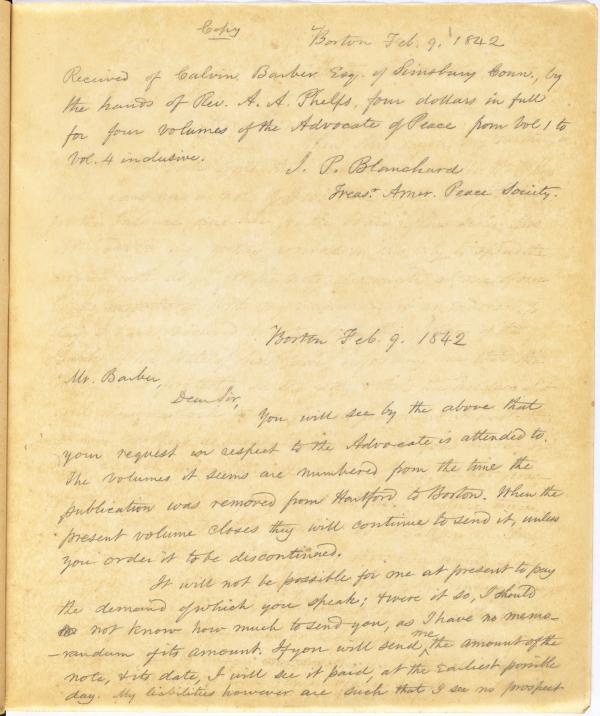 Copy
Boston Feb. 9, 1842
Received of Calvin Barber Esq. of Simsbury Conn., by
the hands of Rev. A. A. Phelps, four dollars in full
for four volumes of the Advocate of Peace from Vol 1 to
Vol. 4 inclusive.
J. P. Blanchard
Treast. Amer. Peace Society.
Boston Feb. 9. 1842
Mr. Barber,
Dear Sir,
You will see by the above that
your request in respect to the Advocate is attended to.
The volumes it seems are numbered from the time the
publication was removed from Hartford to Boston. When the
present volume closes they will continue to send it, unless
you order it to be discontinued.
It will not be possible for me at present to pay
the demand of which you speak; & were it so, I should
not know how much to send you, as I have no memo-
-randum of its amount. If you will send me the amount of the
note, & its date, I will see it paid, at the earliest possible
day. My liabilities however are such that I see no prospect